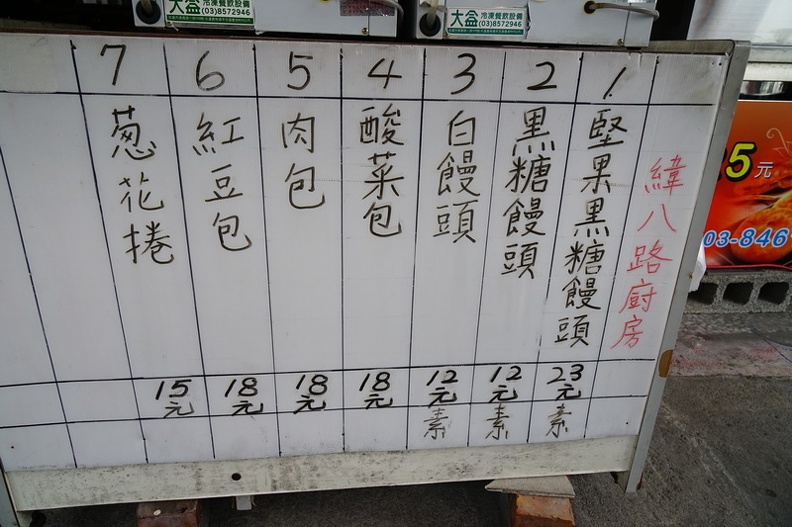 大益 冷凍餐飲設備
(03)8572946
大益 冷凍餐飲設備
(03)8572946
緯八路廚房
1 堅果黑糖饅頭 23元 素
2 黑糖饅頭 12元 素
3 白饅頭 12元 素
4 酸菜包 18元
5 肉包 18元
6 紅豆包 18元
7 葱花捲 15元
5元
03-846